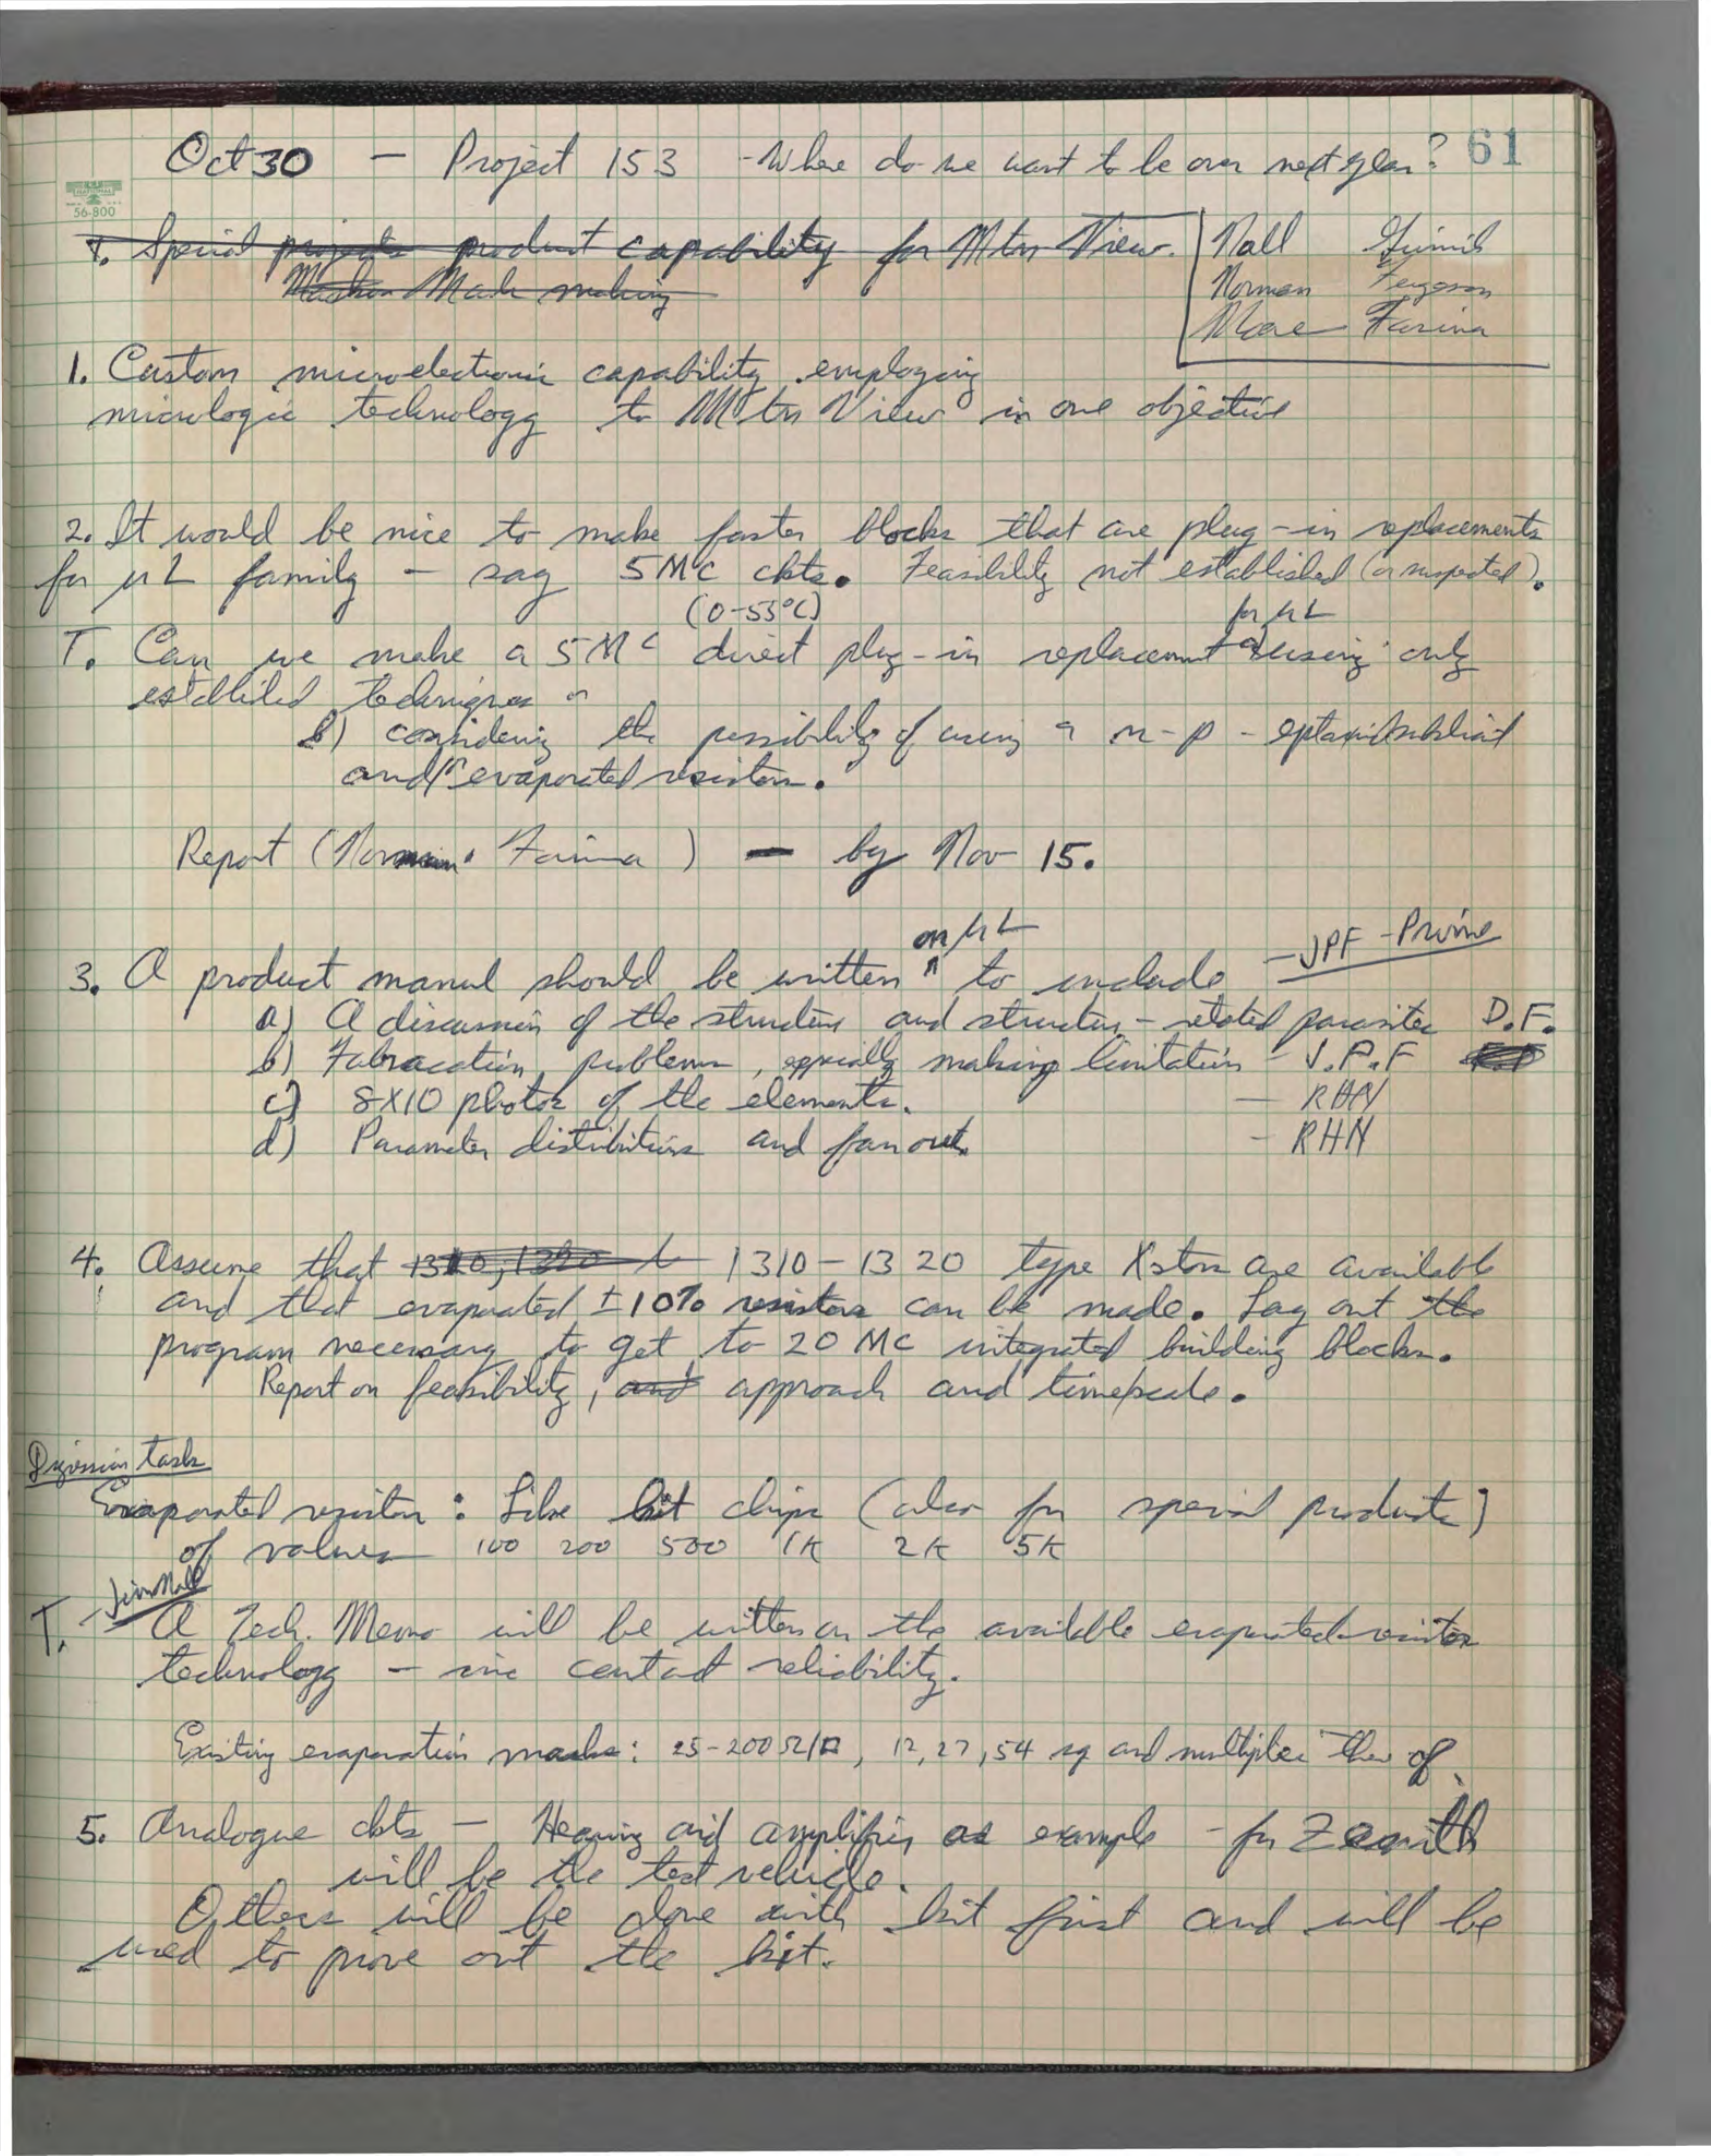 Oct 30 — Project 153 - Where do we want to be over next year? 61
56-800
1. Special product capability for Mtn View.
Mask making
Nall
Norman Ferguson
Moore Farina
1. Custom microelectronic capability employing
micrologic technology to Mtn View is one objective
2. It would be nice to make faster blocks that are plug-in replacements
for µL family — say 5MC ckts. Feasibility not established (or suspected).
(0-55°C) for µL
T. Can we make a 5MC direct plug-in replacement a) using only
established techniques or
b) considering the possibility of using a n-p - epitaxial
and/or evaporated resistors.
Report (Norman · Farina) — by Nov 15.
on µL
3. A product manual should be written ^ to include — JPF - Prime
a) A discussion of the structure and structure-related parasites D.F.
b) Fabrication problems, especially masking limitations - J.P.F
c) 8X10 photos of the elements. — RHN
d) Parameter distributions and fan out. — RHN
4. Assume that 1310-1320 type Xstors are available
and that evaporated ±10% resistors can be made. Lay out the
program necessary to get to 20 MC integrated building blocks.
Report on feasibility, and approach and timescale.
Digression tasks
Evaporated resistors: Like kit chips (also for special products)
of values 100 200 500 1K 2K 5K
Jim Nall
T. - A Tech. Memo will be written on the available evaporated-resistor
technology — inc contact reliability.
Existing evaporation masks: 25-200 Ω/□, 12, 27, 54 sq and multiples there of.
5. Analogue ckts — Hearing aid amplifier as example - for Zenith
will be the test vehicle.
Others will be done with kit first and will be
used to prove out the kit.